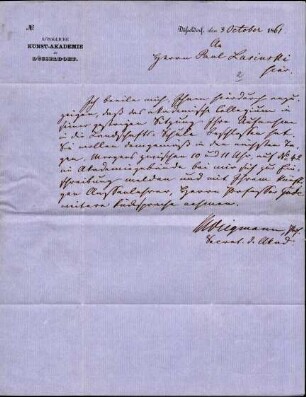 No
KÖNIGLICHE
KUNST-AKADEMIE
ZU
DÜSSELDORF.
Düsseldorf, den 3 October 1861
An
Herrn Paul Lasinski
hier.
Ich beeile mich Ihnen hierdurch anzu-
zeigen, daß das akademische Collegium in
seiner gestrigen Sitzung Ihre Aufnahme
in die Landschafts-Schule beschlossen hat
Sie wollen demgemäß in den nächsten Ta-
gen, Morgens zwischen 10 und 11 Uhr auf No 48
im Akademiegebäude bei mir sich zur Ein-
schreibung melden und mit Ihrem künfti-
gen Herrn Professor Gude
weitere Rücksprache nehmen.
Wiegmann, Prof.
Secret. d. Akad.